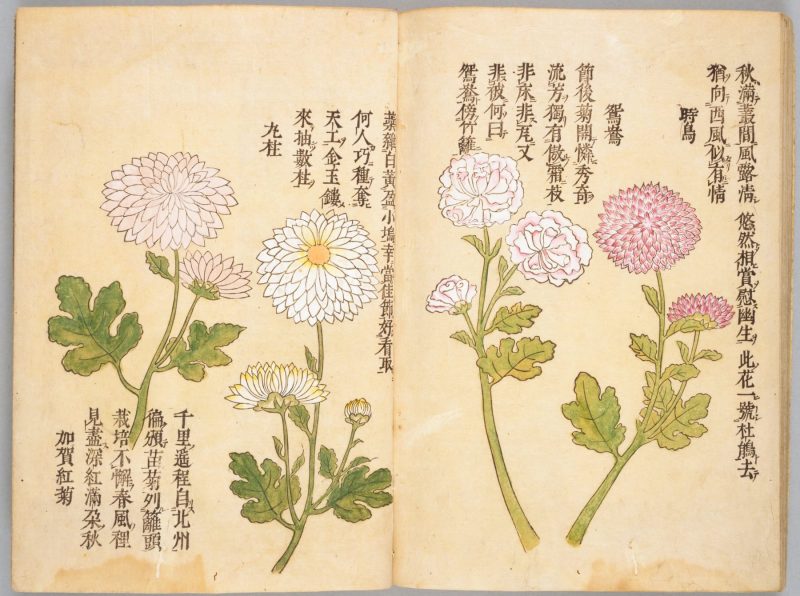 秋滿叢間風露淸 悠然相賞慰幽生 此花一號杜鵑去
猶向西風似有情
時鳥
鴛鴦
節後菊開憐秀奇
流芳獨有傲霜枝
非床非瓦又
非彼何曰
鴛鴦傍竹籬
蘂雜白黃盈小塢幸當佳節好看取
何人巧種奪
天工金玉鏤
來抽數柱
九柱
千里遙程自北州
徧頒苗菊列籬頭
栽培不懈春風裡
見盡深紅滿朶秋
加賀紅菊